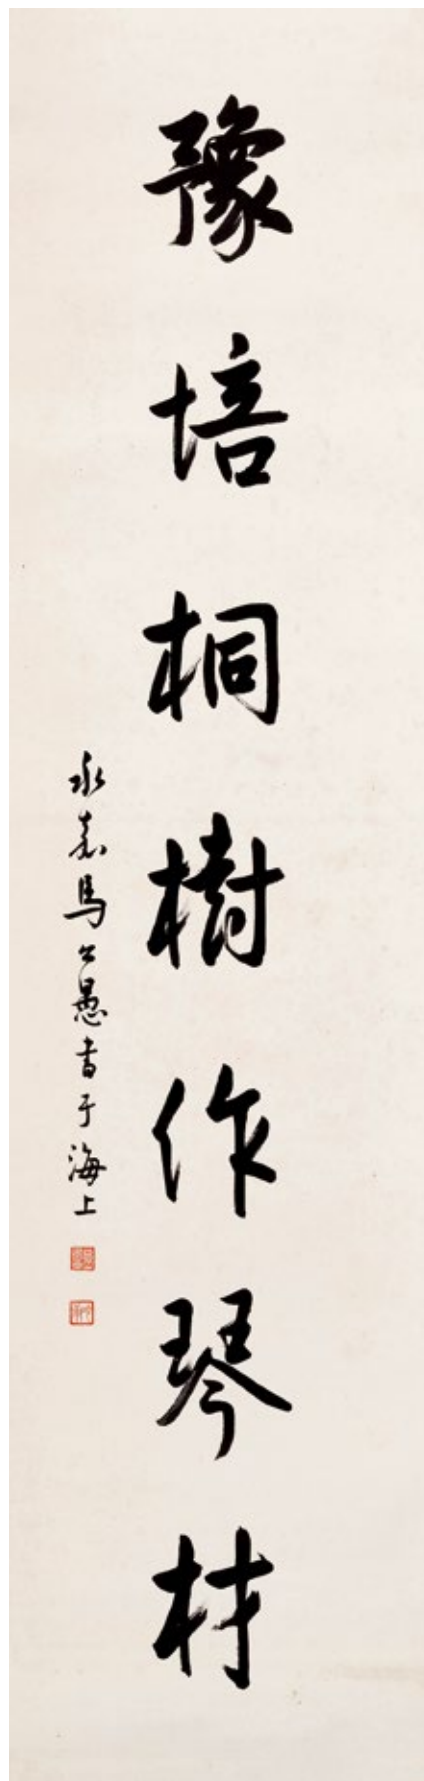 豫培桐樹作琴材
永嘉馬公愚書于海上